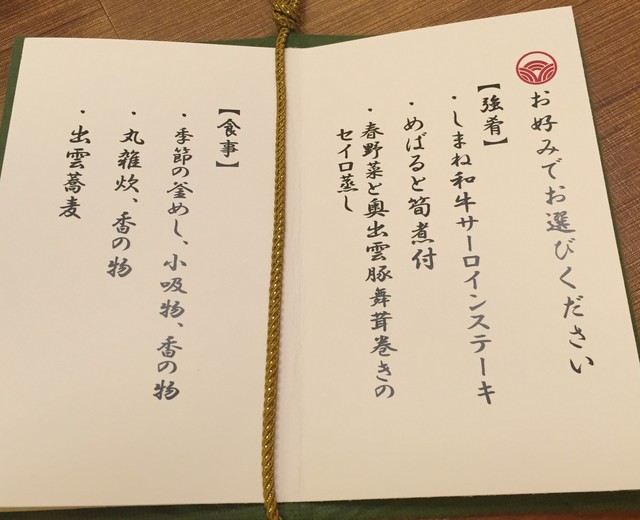 お好みでお選びください
【強肴】
・しまね和牛サーロインステーキ
・めばると筍煮付
・春野菜と奥出雲豚舞茸巻きの
セイロ蒸し
【食事】
・季節の釜めし、小吸物、香の物
・丸雑炊、香の物
・出雲蕎麦